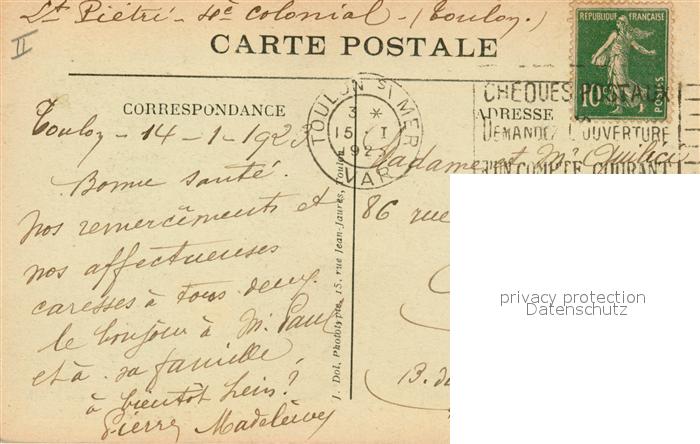 Lt Piétri - 4e colonial - (Toulon.)
II
CARTE POSTALE
RÉPUBLIQUE FRANÇAISE
10c
POSTES
CORRESPONDANCE
ADRESSE
TOULON S/MER
3 *
15 I
192
VAR
CHÈQUES POSTAUX
DEMANDEZ L'OUVERTURE
D'UN COMPTE COURANT
Toulon - 14 - 1 - 1923
Bonne santé.
nos remercîments et
nos affectueuses
caresses à tous deux.
le bonjour à Mr Paul
et à sa famille
à bientôt hein?
Pierre Madeleine
Madame et Mr
86 rue
13. de
J. Dol, Phototypie, 15, rue Jean-Jaurès, Toulon
privacy protection
Datenschutz